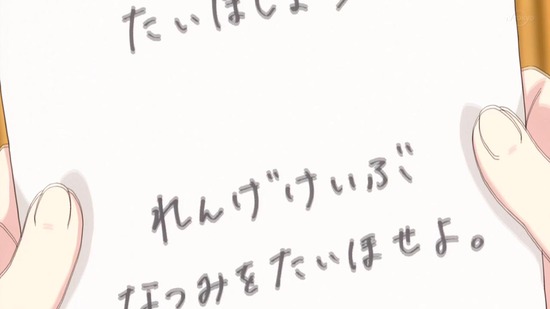 たいほじょう
れんげけいぶ
なつみをたいほせよ。